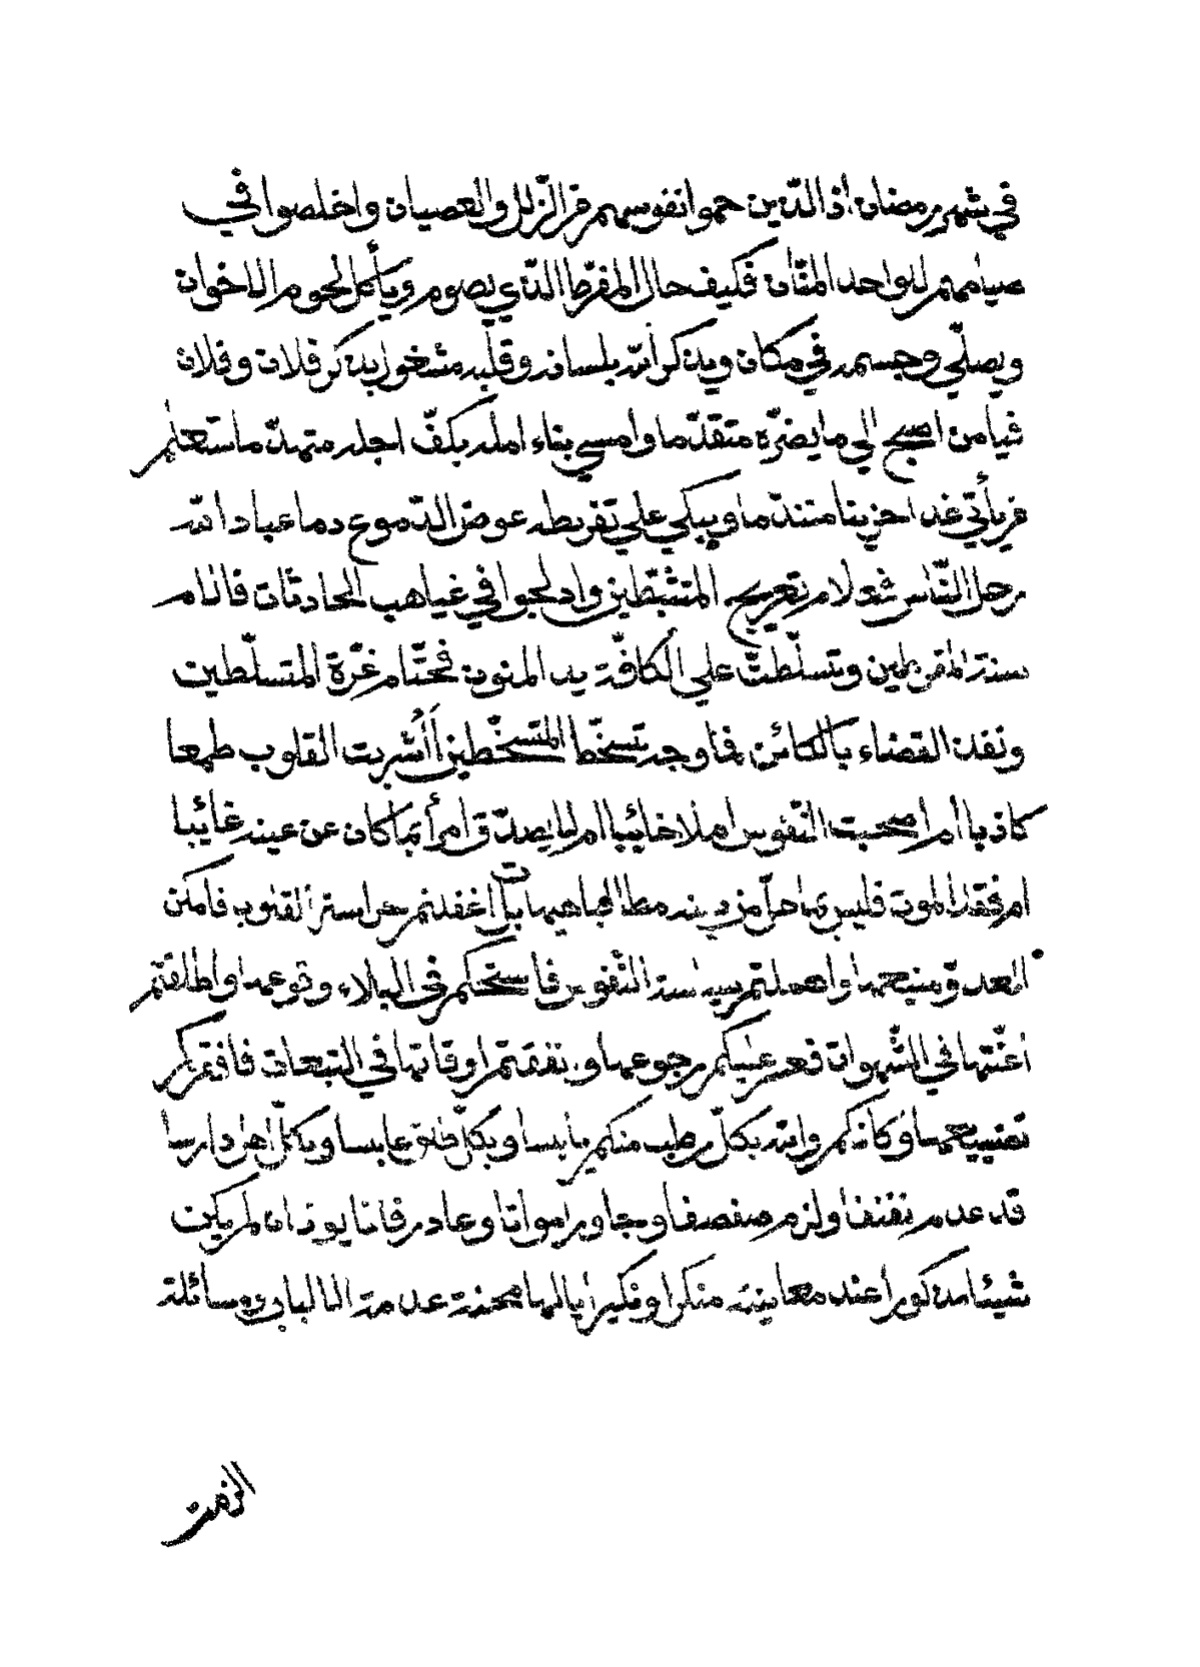 في شهر رمضان اذ الذين حموا نفوسهم من الزلل والعصيان واخلصوا في
صيامهم للواحد المنّان فكيف حال المفرّط الذي يصوم ويأكل لحوم الاخوان
ويصلّي وجسمه في مكان ويذكر الله بلسانه وقلبه مشغول بذكر فلان وفلان
فيا من اصبح الي ما يضرّه متقدّما وامسي بناء امله بكفّ اجله متهدّما ستعلم
من يأتي غدا حزينا متندّما ويبكي علي تفريطه عوض الدّموع دما عباد الله
رحل النّاس فعلام تعريج المتثبّطين وادلجوا في غياهب الحادثات فالام
سنة وتسلّطت علي الكافّة يد المنون فحتّام غرّة المتسلّطين
ونفذ القضاء بالكائن فما وجد تسخّط المتسخّطين أأشربت القلوب طمعا
كاذبا أم اصحبت النّفوس املا خائبا ام لا يصدّق امرأ بما كان عن عينه غائبا
ام فقد الموت فليس بما حلّ من دينه مطالبا هيهات بل اغفلتم حراسة القلوب فامكن
العدوّ منيعها واهملتم سياسة النّفوس فاستحكم في البلاء وقوعها واطلقتم
اعنّتها في الشّهوات فعسر عليكم رجوعها وانفقتم اوقاتها في التبعات فافقركم
تضييعها وكأنكم والله بكلّ رطب منكم يابسا وبكلّ طلق عابسا وبكلّ اهل دارسا
قد عدم نفنفا ولزم صفصفا وجاور امواتا وعاد رفاتا يود ان لم يكن
شيئا مذكورا عند معاينة منكرا ونكيرا يا لها محنة عدمت الالباب وسائلة
الزمت